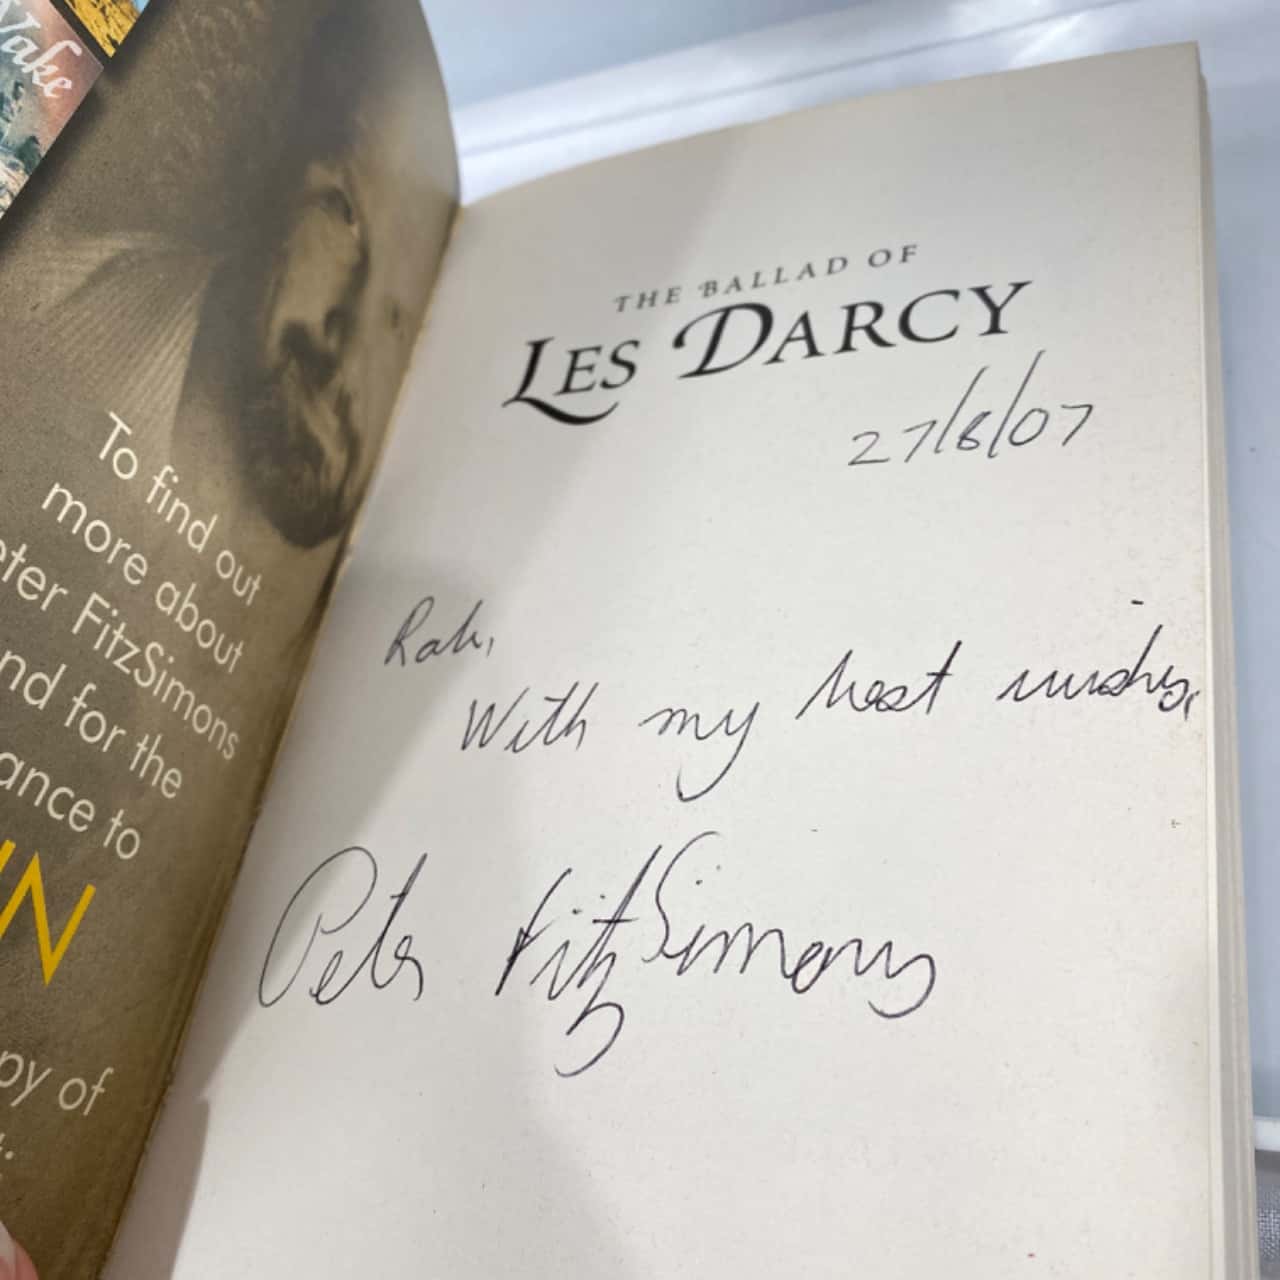 Wake
To find out
more about
eter FitzSimons
nd for the
ance to
IN
py of
THE BALLAD OF
LES DARCY
27/8/07
With my best wishes,
Peter FitzSimons